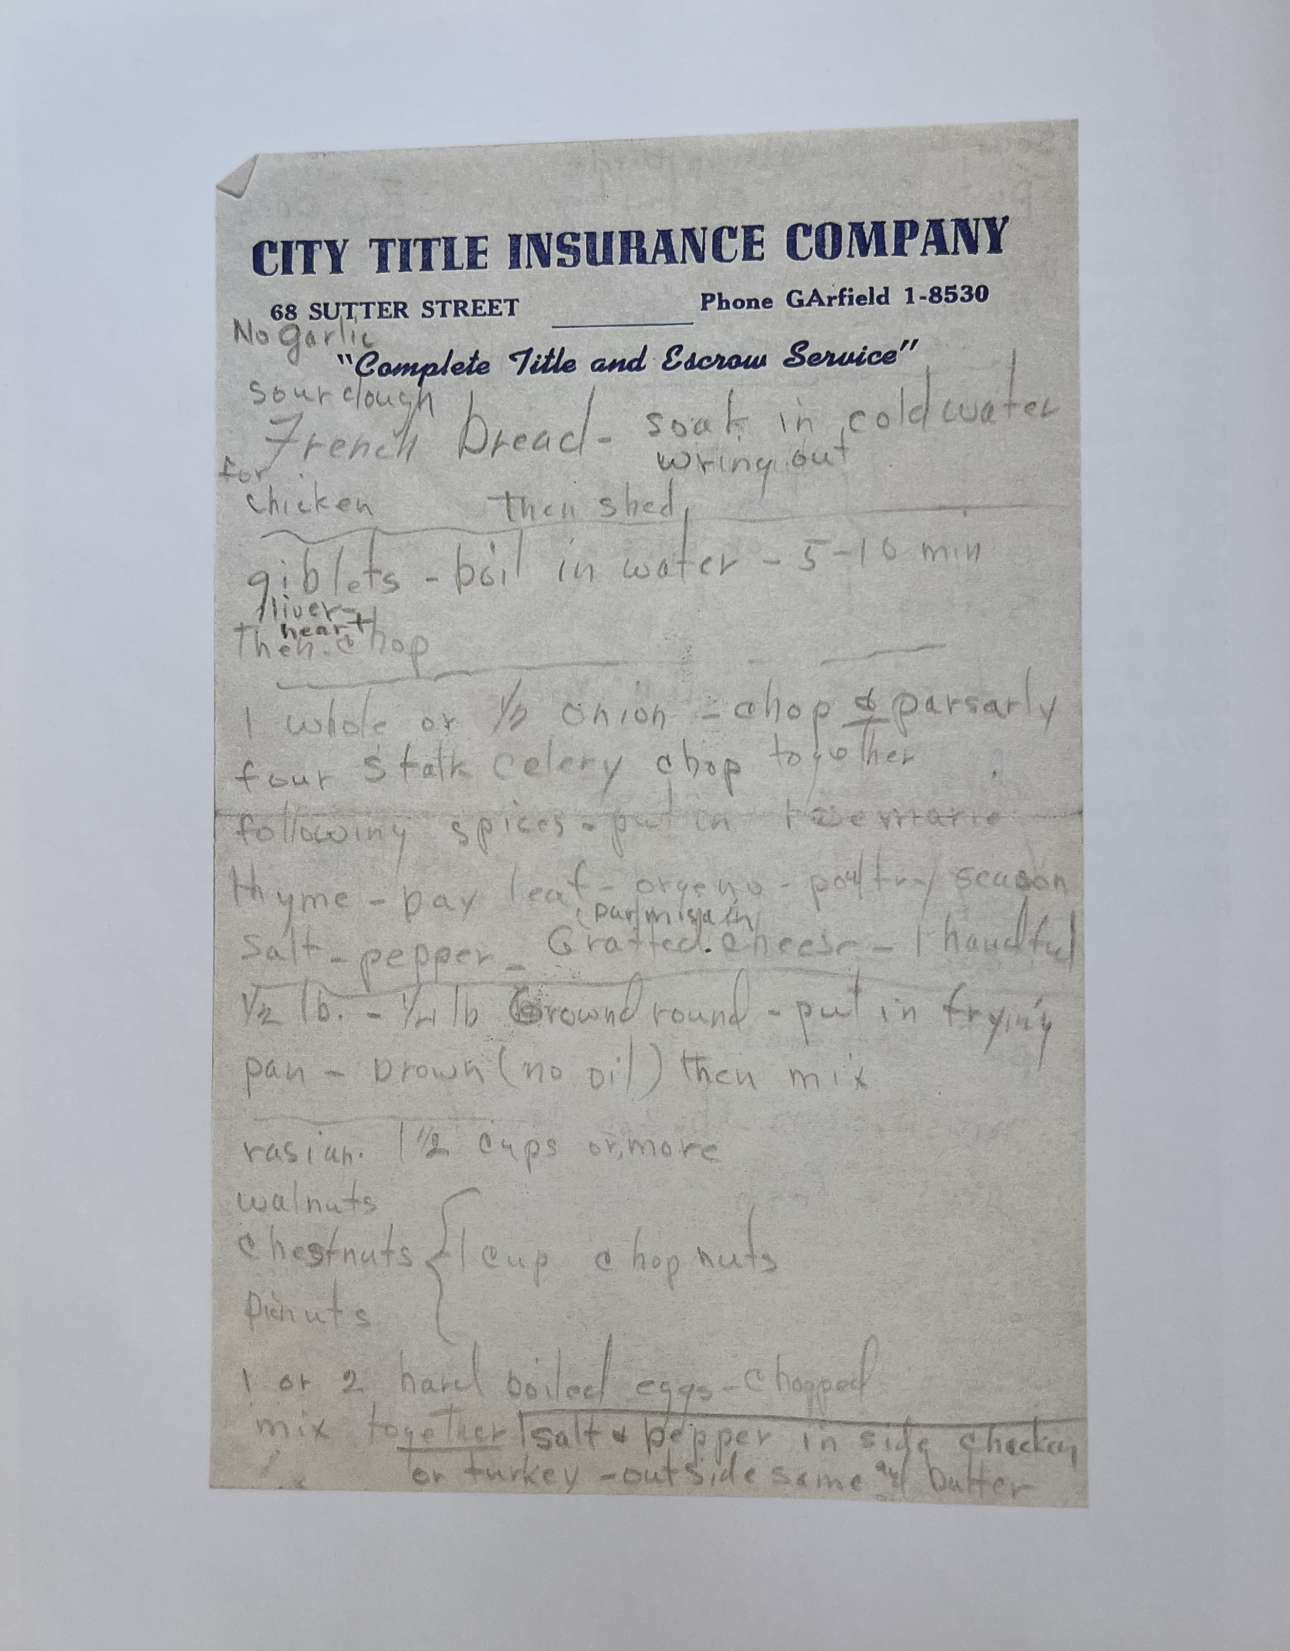 CITY TITLE INSURANCE COMPANY
68 SUTTER STREET Phone GArfield 1-8530
No garlic
"Complete Title and Escrow Service"
sourdough
French bread - soak in cold water
wring out
for
chicken then shed
giblets - boil in water - 5-10 min
liver-
heart
then chop
1 whole or 1/2 onion - chop & parsarly
four stalk celery chop together
following spices - put in rosemarie
thyme - bay leaf - orgeno - poultry season
(parmisain)
salt - pepper - Gratted cheese - 1 handful
1/2 lb. - 1/4 lb Ground round - put in frying
pan - brown (no oil) then mix
rasian. 1 1/2 cups or more
walnuts
chestnuts { 1 cup chop nuts
pinuts
1 or 2 hard boiled eggs - chopped
mix together salt & pepper in side chicken
or turkey - outside same and butter